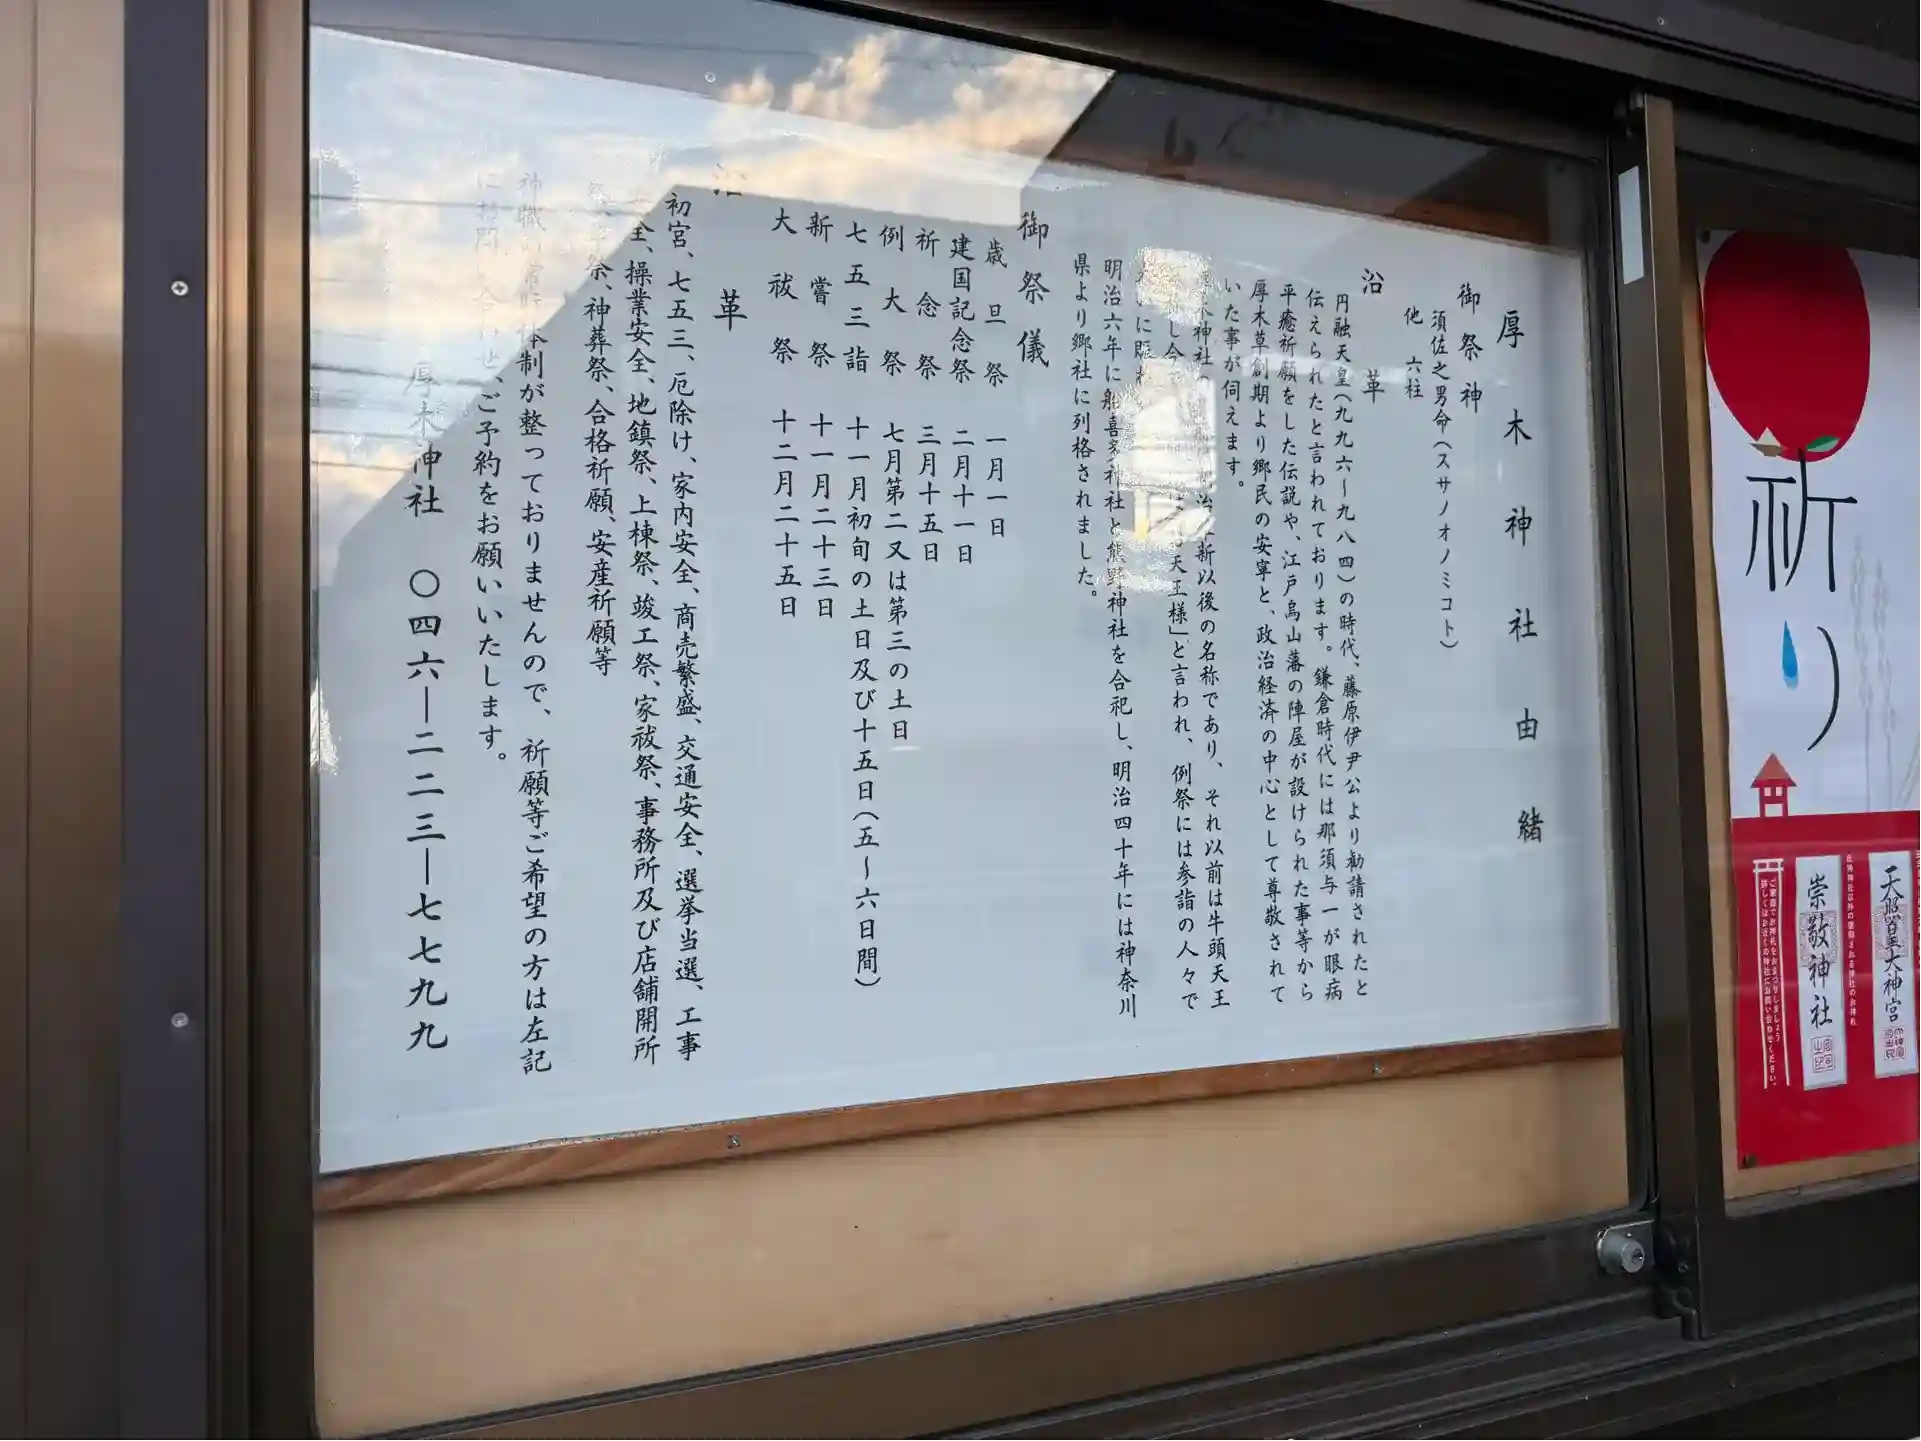 厚木神社由緒
御祭神
須佐之男命(スサノオノミコト)
他 六柱
沿革
円融天皇(九九六~九八四)の時代、藤原伊尹公より勧請されたと
伝えられたと言われております。鎌倉時代には那須与一が眼病
平癒祈願をした伝説や、江戸烏山藩の陣屋が設けられた事等から
厚木草創期より郷民の安寧と、政治経済の中心として尊敬されて
いた事が伺えます。
厚木神社 新以後の名称であり、それ以前は牛頭天王
し今 天王様」と言われ、例祭には参詣の人々で
いに賑
明治六年に船喜多神社と熊野神社を合祀し、明治四十年には神奈川
県より郷社に列格されました。
御祭儀
歳旦祭 一月一日
建国記念祭 二月十一日
祈念祭 三月十五日
例大祭 七月第二又は第三の土日
七五三詣 十一月初旬の土日及び十五日(五~六日間)
新嘗祭 十一月二十三日
大祓祭 十二月二十五日
沿革
初宮、七五三、厄除け、家内安全、商売繁盛、交通安全、選挙当選、工事
全、操業安全、地鎮祭、上棟祭、竣工祭、家祓祭、事務所及び店舗開所
祭、神葬祭、合格祈願、安産祈願等
神職の常駐体制が整っておりませんので、祈願等ご希望の方は左記
にお問い合わせ、ご予約をお願いいたします。
厚木神社 〇四六―二二三―七七九九
祈り
天照皇大神宮
氏神神社以外の崇敬される神社のお神札
崇敬神社
ご家庭でお神札をおまつりしましょう
詳しくはお近くの神社にお問い合わせください。